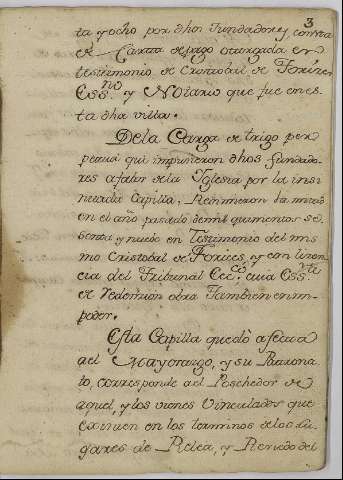 3
ta y ocho por dhos Fundadores, y consta
de Carta de pago otorgada en
testimonio de Cristobal de
Essno. y Notario que fue en es-
ta dha villa.
Dela Carga de trigo per
petua que impusieron dhos fundado-
res afabor dela Iglesia por la insi
nuada Capilla, Redimieron la mitad
en el año pasado de mil quinientos se-
senta y nuebe en Testimonio del mis
mo Cristobal de y con licen
cia del Tribunal Ecco. cuia Essrite
de Redempcion obra Tambien enmi
poder.
Esta Capilla quedò afecta
ael Mayorazgo, y su Patrona-
to, corresponde ael Poschedor de
aquel, y los vienes Vinculados que
existen en los terminos delos lu-
gares de Relea, y Renedo del